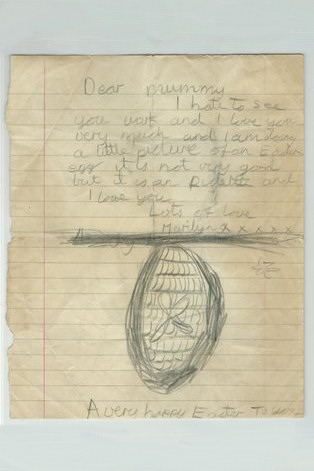 Dear mummy
I hate to see
you work and I love you
very much and I am doing
a little picture of an Easter
egg it is not very good
but it is an Egg and
I love you
Lots of love
Marilyn x x x x x
A very happy Easter To you